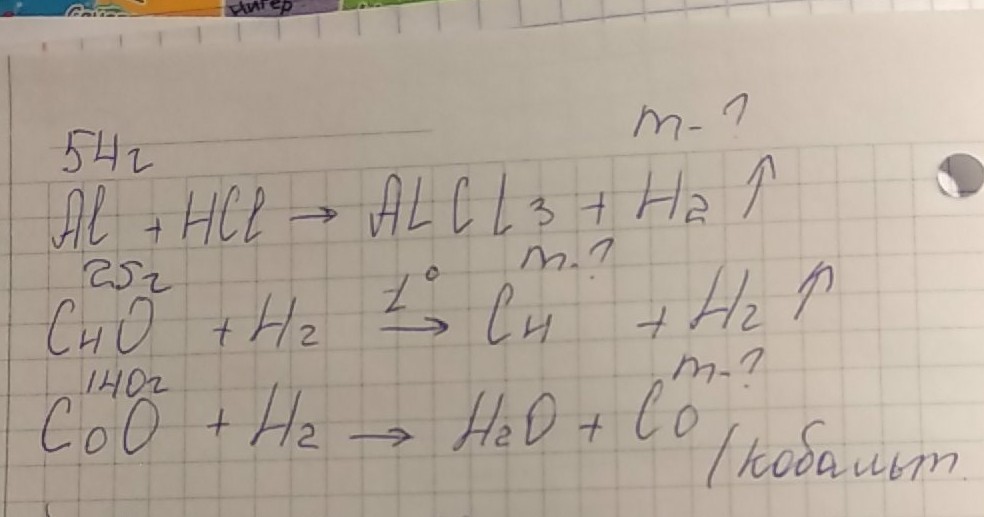 Нигер
m-?
54г
Al + HCl → AlCl3 + H2 ↑
25г m-?
CuO + H2 t° → Cu + H2 ↑
140г m-?
CoO + H2 → H2O + Co
/кобальт